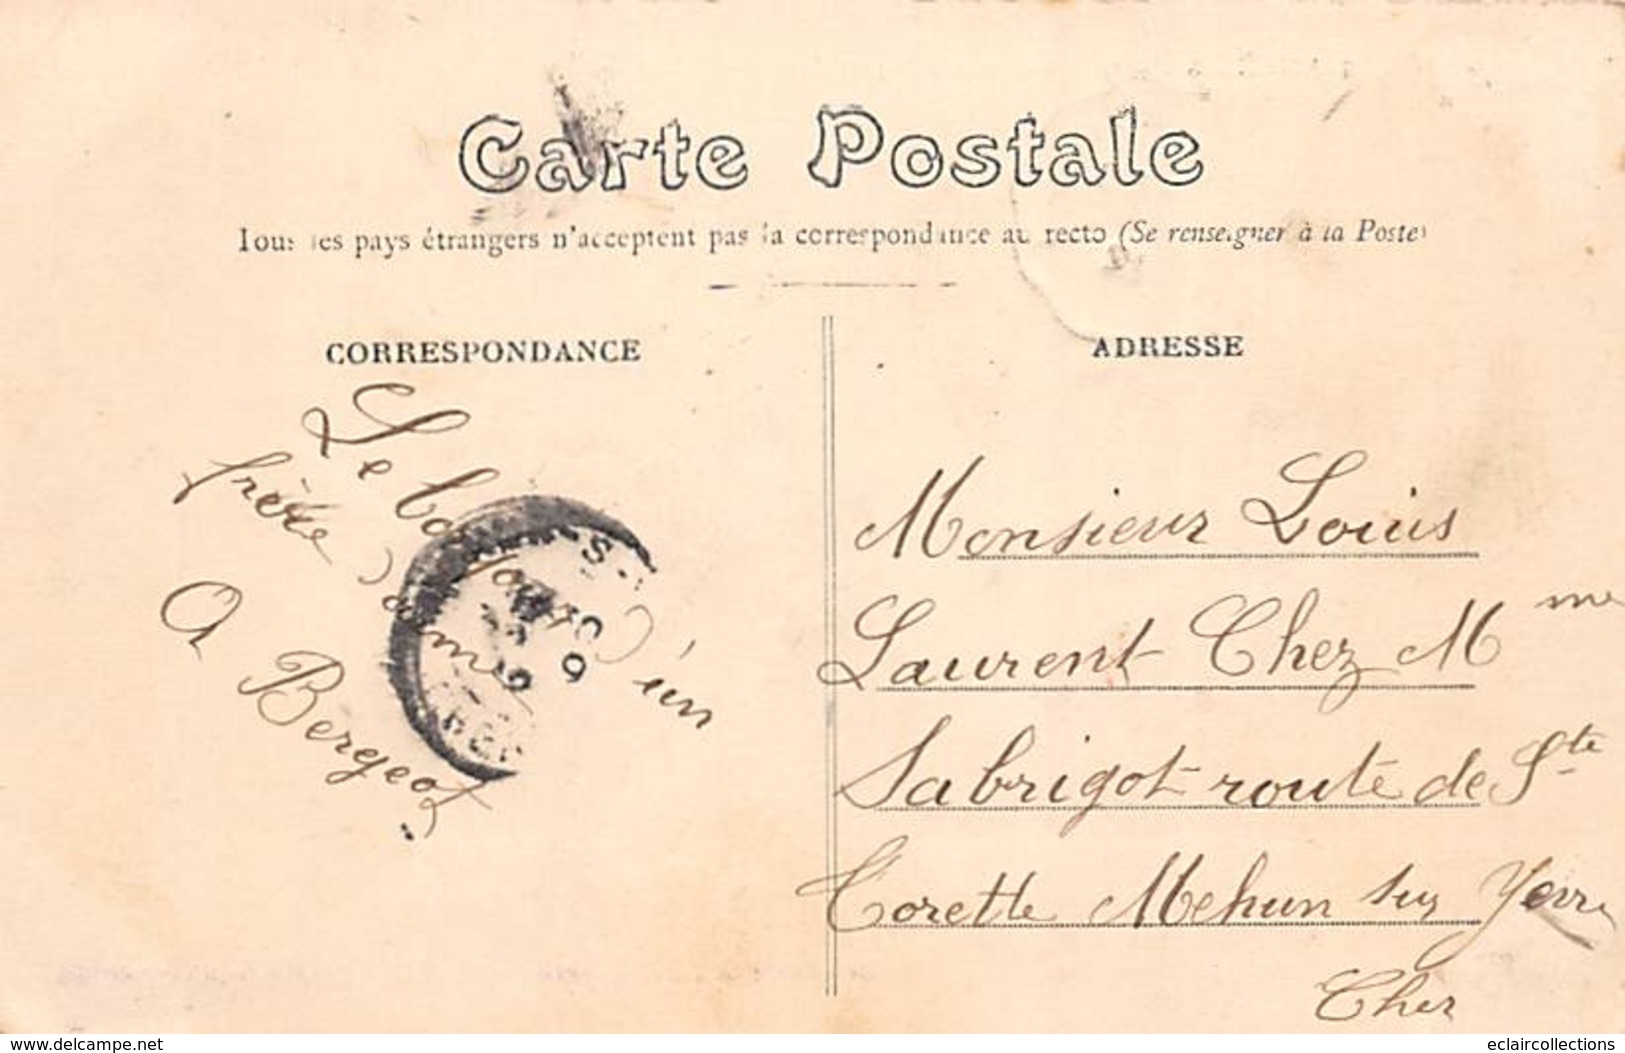 Carte Postale
Tous les pays étrangers n'acceptent pas la correspondance au recto (Se renseigner à la Poste)
CORRESPONDANCE
ADRESSE
Le bonjour d'un
frère
A Bergeot
Monsieur Louis
Laurent Chez Mme
Sabrigot route de Ste
Torette Mehun sur Yevre
Cher
delcampe.net
eclaircollections